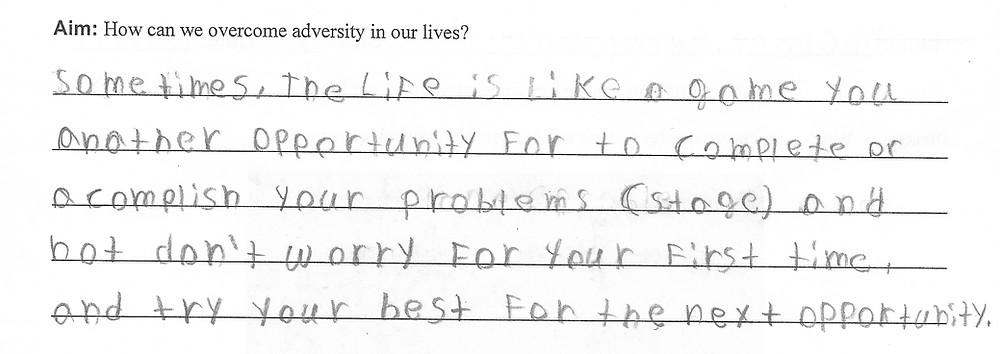 Aim: How can we overcome adversity in our lives?
Sometimes, the Life is Like a game You
another opportunity For to complete or
acomplish your problems (stage) and
not don't worry For Your First time,
and try your best For the next opportunity.